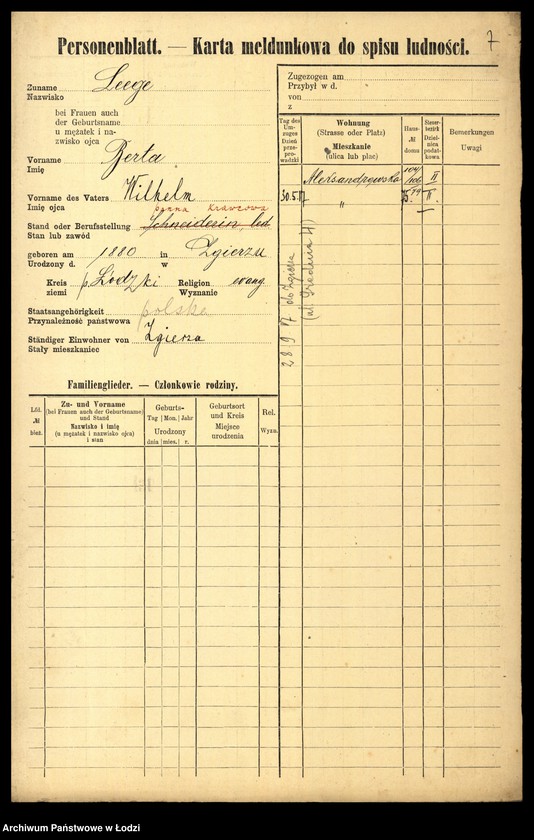 7
Personenblatt. — Karta meldunkowa do spisu ludności.
Zuname
Nazwisko
Leege
bei Frauen auch
der Geburtsname
u mężatek i na-
zwisko ojca
Vorname
Imię
Berta
Vorname des Vaters
Imię ojca
Wilhelm
panna Krawcowa
Stand oder Berufsstellung
Stan lub zawód
Schneiderin led
geboren am 1880 in Zgierzu
Urodzony d. w
Kreis
ziemi
p. Łódzki
Religion
Wyznanie
evang.
Staatsangehörigkeit
Przynależność państwowa
polska
Ständiger Einwohner von
Stały mieszkaniec
Zgierza
Familienglieder. — Członkowie rodziny.
Lfd.
№
bież.
Zu- und Vorname
(bei Frauen auch der Geburtsname)
und Stand
Nazwisko i imię
(u mężatek i nazwisko ojca)
i stan
Geburts-
Tag Mon. Jahr
Urodzony
dnia mies. r.
Geburtsort
und Kreis
Miejsce
urodzenia
Rel.
Wyzn.
Zugezogen am
Przybył w d.
von
z
Tag des
Um-
zuges
Dzień
prze-
prowadzki
Wohnung
(Strasse oder Platz)
Mieszkanie
(ulica lub plac)
Haus-
№
domu
Steuer-
bezirk
Dziel-
nica
podat-
kowa
Bemerkungen
Uwagi
Aleksandrowska 104 II
30.5.17 " 75 II
28 9 17 do Zgierza
(ul. Średnia 4)
Archiwum Państwowe w Łodzi